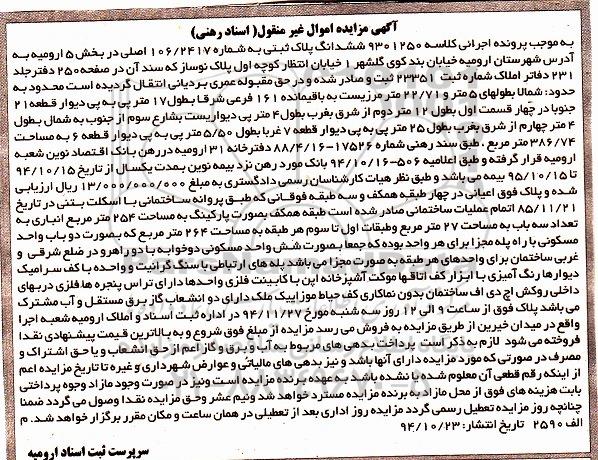 آگهی مزایده اموال غیر منقول( اسناد رهنی)
به موجب پرونده اجرائی کلاسه ۹۳۰۱۲۵۰ ششدانگ پلاک ثبتی به شماره ۱۰۶/۲۴۱۷ اصلی در بخش ۵ ارومیه به
آدرس شهرستان ارومیه خیابان بند کوی گلشهر ۱ خیابان انتظار کوچه اول پلاک نوساز که سند آن در صفحه ۲۵۰ دفتر جلد
۲۳۱ دفاتر املاک شماره ثبت ۲۳۳۵۱ ثبت و صادر شده و در حق مقبوله عمری بردیانی انتقال گردیده است محدود به
حدود: شمالا بطولهای ۵ متر و ۲۲/۷۱ متر مرزیست به باقیمانده ۱۶۱ فرعی شرقا بطول ۱۷ متر پی به پی دیوار قطعه ۲۱
جنوبا در چهار قسمت اول بطول ۱۲ متر دوم از شرق بغرب بطول ۴ متر پی دیواریست بشارع سوم از جنوب به شمال بطول
۴ متر چهارم از شرق بغرب بطول ۲۵ متر پی به پی دیوار قطعه ۷ غربا بطول ۵/۵۰ متر پی به پی دیوار قطعه ۶ به مساحت
۳۸۶/۷۴ متر مربع . طبق سند رهنی شماره ۱۷۵۲۶-۸۸/۴/۱۶ دفترخانه ۳۱ ارومیه در رهن بانک اقتصاد نوین شعبه
ارومیه قرار گرفته و طبق اعلامیه ۵۰۶-۹۴/۱۰/۱۶ بانک مورد رهن نزد بیمه نوین بمدت یکسال از تاریخ ۹۴/۱۰/۱۵
تا ۹۵/۱۰/۱۵ بیمه می باشد و طبق نظر هیات کارشناسان رسمی دادگستری به مبلغ ۱۳/۰۰۰/۰۰۰/۰۰۰ ریال ارزیابی
شده و پلاک فوق اعیانی در چهار طبقه همکف و سه طبقه فوقانی که طبق پروانه ساختمانی با اسکلت بتنی در تاریخ
۸۵/۱۱/۲۱ اتمام عملیات ساختمانی صادر شده است طبقه همکف بصورت پارکینگ به مساحت ۲۵۴ متر مربع انباری به
تعداد سه باب به مساحت ۲۷ متر مربع وطبقات اول تا سوم هر طبقه به مساحت ۲۶۴ متر مربع که بصورت دو باب واحد
مسکونی با راه پله مجزا برای هر واحد بوده که جمعا بصورت شش واحد مسکونی دوخوابه با دو راهرو در ضلع شرقی و
غربی ساختمان برای واحدهای هر طبقه به صورت مجزا می باشد پله های ارتباطی با سنگ گرانیت و واحده با کف سرامیک
دیوارها رنگ آمیزی با ابزار کف اتاقها موکت آشپزخانه اپن با کابینت فلزی واحدها دارای تراس پنجره ها فلزی دربهای
داخلی روکش اچ دی اف ساختمان بدون نماکاری کف حیاط موزاییک ملک دارای دو انشعاب گاز برق مستقل و آب مشترک
می باشد پلاک فوق از ساعت ۹ الی ۱۲ روز سه شنبه مورخ ۹۴/۱۱/۲۷ در اداره ثبت اسناد و املاک ارومیه شعبه اجرا
واقع در میدان خیرین از طریق مزایده به فروش می رسد مزایده از مبلغ فوق شروع و به بالاترین قیمت پیشنهادی نقدا
فروخته می شود لازم به ذکر است پرداخت بدهی های مربوط به آب و برق و گاز اعم از حق انشعاب و یا حق اشتراک و
مصرف در صورتی که مورد مزایده دارای آنها باشد و نیز بدهی های مالیاتی و عوارض شهرداری و غیره تا تاریخ مزایده اعم
از اینکه رقم قطعی آن معلوم شده یا نشده باشد به عهده برنده مزایده است ونیز در صورت وجود مازاد وجوه پرداختی
بابت هزینه های فوق از محل مازاد به برنده مزایده مسترد خواهد شد ونیم عشر وحق مزایده نقدا وصول می گردد ضمنا
چنانچه روز مزایده تعطیل رسمی گردد مزایده روز اداری بعد از تعطیلی در همان ساعت و مکان مقرر برگزار خواهد شد. م
الف ۲۵۹۰ تاریخ انتشار: ۹۴/۱۰/۲۳
سرپرست ثبت اسناد ارومیه